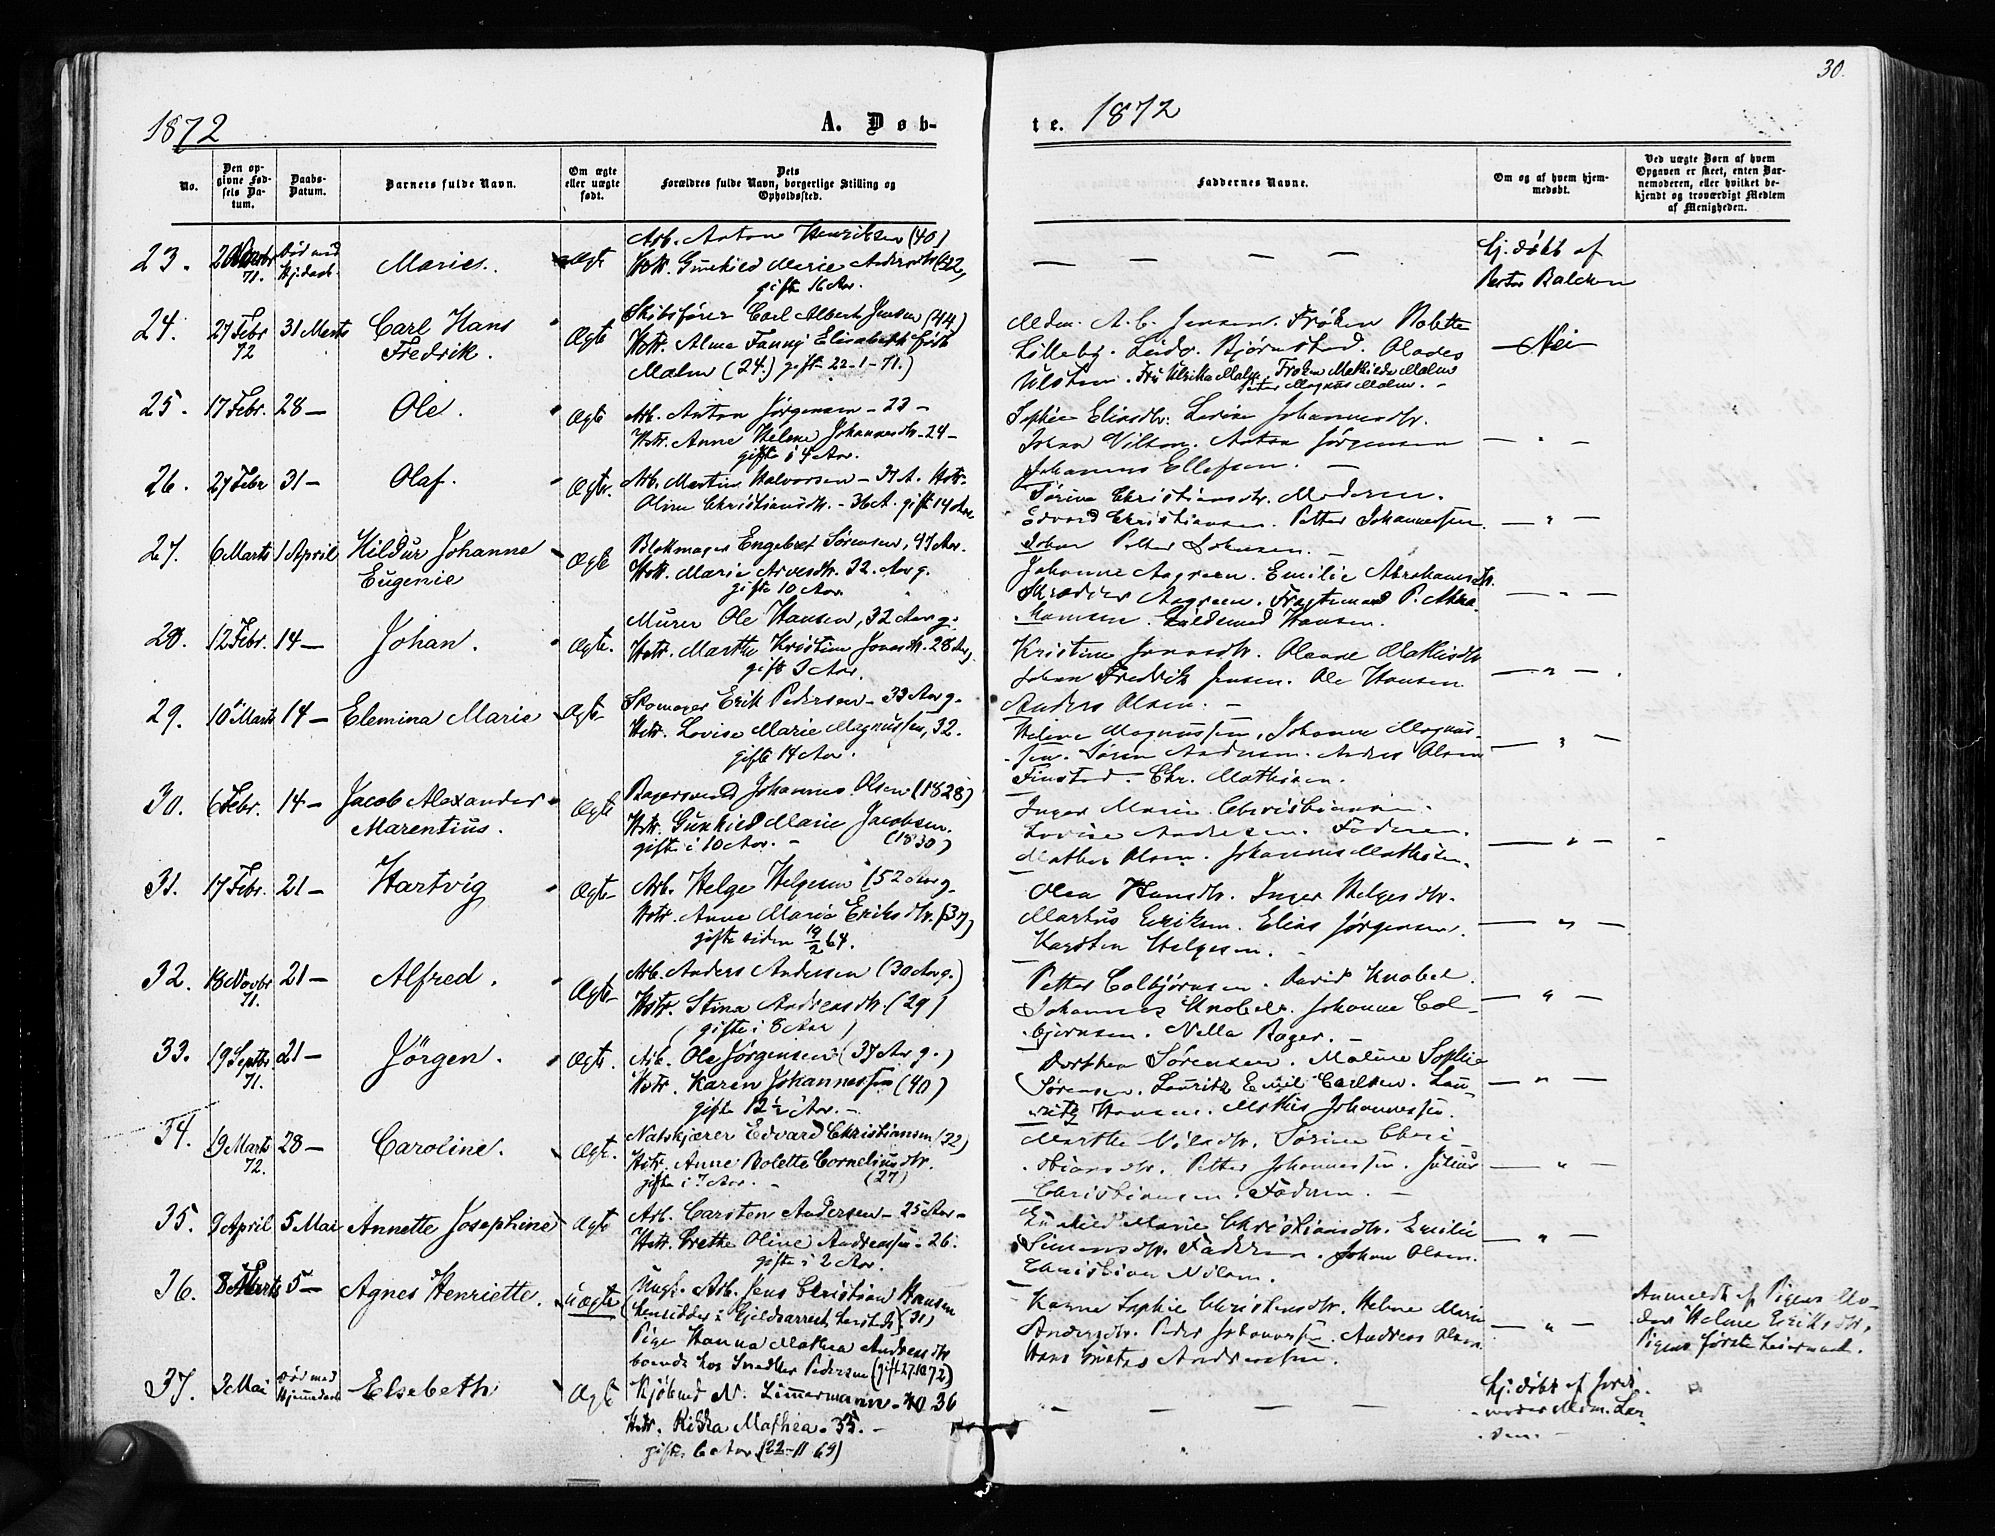 30.
1872
A. Døb-
te. 1872
No.
Den opgivne Fødsels Datum.
Daabs-Datum.
Barnets fulde Navn.
Om ægte eller uægte født.
Dets Forældres fulde Navn, borgerlige Stilling og Opholdssted.
Faddernes Navne.
Om og af hvem hjemmedøbt.
Ved uægte Børn af hvem Opgaven er skeet, enten Barnemoderen, eller hvilket bekjendt og troværdigt Medlem af Menigheden.
23. 71. Marie. Ægte
Arb. Anton Henriksen (40)
Hstr. Gunhild Marie
gift 16 Aar.
— — — —
hj. døbt af
24. 27 Febr 72 31 Marts Carl Hans Fredrik. Ægte
Skibsfører Carl Albert Jensen (44)
Hstr. Alma Fanny Elisabeth
Malm (24.) gift 22-1-71.)
Mdm. A. C. Jensen. Frøken Bolette
Lilleby. Bjørnstad.
Fru Ulrikke Malm. Frøken Mathilde Malm
Peter Magnus Malm. —
Nei
25. 17 Febr. 28 — Ole. Ægte
Arb. Anton Jørgensen — 23 —
Hstr. Anne Helene Johannesdtr. 24 —
gifte i 4 Aar.
Sophie Eliasdtr. Lovise Johannesdtr.
Johan Nilsen. Anton Jørgensen
Johannes Ellefsen. —
— " —
26. 27 Febr 31 — Olaf. Ægte.
Arb. Martin Halvorsen — 37 A. Hstr.
Oline Christiansdtr. — 36 A. gift 14 Aar.
Sørine Christiansdtr. Moderen.
Edvard Christiansen. Petter Johannessen.
Johan Petter
— " —
27. 6 Marts 1 April Hildur Johanne Eugenie Ægte
Blokmager Engebret Sørensen, 47 Aar.
Hstr. Marie Arvesdtr. 32. Aar g.
gifte 10 Aar.
Johanne Aagreen. Emilie Abrahamsdtr.
Skrædder Aagreen. P. Abra-
hamsen. Hansen.
— " —
28. 12 Febr. 14 — Johan. Ægte.
Murer Ole Hansen, 32 Aar g.
Hstr. Marthe Kristine Jonasdtr. 28 Aar.
gift 3 Aar.
Kristine Jonasdtr.
Johan Fredrik Jensen. Ole Hansen
Anders Olsen. —
— " —
29. 10 Marts 14 — Elemina Marie Ægte
Skomager Erik Pedersen — 33 Aar g.
Hstr. Lovise Marie Magnussen, 32.
gifte 14 Aar.
Helene Magnussen. Johanne Magnus-
sen. Søren Andersen. Anders Olsen
Finstad. Chr. Mathisen.
— " —
30. 6 Febr. 14 — Jacob Alexander Marentius. Ægte
Bagersvend Johannes Olsen (1828)
Hstr. Gunhild Marie Jacobsen.
gifte i 10 Aar. — (1830)
Inger Marie Christiansen.
Lovise Andresen. Faderen.
Mathea Olsen. Johannes Mathisen.
— " —
31. 17 Febr. 21 — Hartvig Ægte
Arb. Helge Helgesen (52 Aar g.
Hstr. Anne Maria Eriksdtr. (37)
gifte siden 19/2 64.
Olea Hansdtr. Inger Helgesdtr.
Martinus Eriksen. Elias Jørgensen.
Karsten Helgesen. —
— " —
32. 18 Novbr 71. 21 — Alfred. Ægte
Arb. Anders Andersen (30 Aar g.)
Hstr. Stina Andreasdtr. (29)
(gifte i 8 Aar)
Petter Colbjørnsen. David Knobel.
Johannes Knobel. Johanne Col-
bjørnsen. Nella Bager. —
— " —
33. 19 Septbr 71. 21 — Jörgen. Ægte.
Arb. Ole Jørgensen (37 Aar g.)
Hstr. Karen Johannessen (40)
gifte 12½ Aar. —
Dorthea Sørensen. Maline Sophie
Sørensen. Lauritz Emil Carlsen. Lau-
ritz Hansen. Mathis Johannessen.
— " —
34. 19 Marts 72. 28 — Caroline. Ægte.
Natskjærer Edvard Christiansen (32)
Hstr. Anne Bolette Corneliusdtr.
gifte i 7 Aar. — (27)
Marthe Nilsdtr. Sørine Chri-
stiansdtr. Petter Johannessen. Julius
Christiansen. Faderen. —
— " —
35. 9 April 5 Mai Annette Josephine Ægte
Arb. Carsten Andersen — 25 Aar —
Hstr. Grethe Oline Andreassen — 26.
gifte i 2 Aar.
Gunhild Marie Christiansdtr. Emilie
Simensdtr. Faderen. Johan Olsen.
Christian Nilsen.
— " —
36. 8 Marts 5 — Agnes Henriette. uægte
Ungk. Arb. Jens Christian Hansen
(hensidder i Gjeldsarrest (31)
Pige Hanna Mathea Andreasdtr
boende hos Snedker Pedersen
Karen Sophie Christensdtr. Helene Marie
Andersdtr. Peder Johannessen. Andreas Olsen
Hans Gustav Andreassen.
— " —
Anmeldt af Pigens Mo-
der Helene Eriksdtr.
Pigens første Leiermaal.
37. 3 Mai død med Hjemmedaab Elsebeth Ægte
Kjøbmd N. Limermann — 36
Hstr. Mathea — 35. —
gifte 6 Aar (22-11 69)
— — — —
hj. døbt af Jord-
moder Mdm. Lar-
sen. —